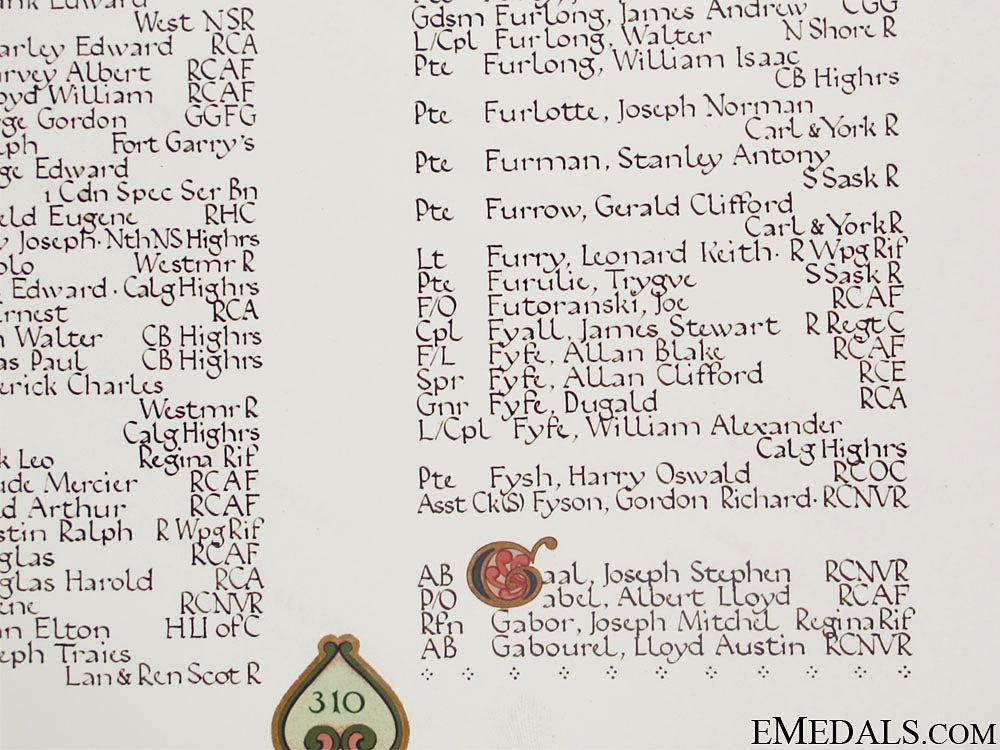 Edward
West NSR
arley Edward RCA
arvey Albert RCAF
oyd William RCAF
ge Gordon GGFG
lph Fort Garry's
ge Edward
1 Cdn Spec Ser Bn
eld Eugene RHC
y Joseph · Nth NS Highrs
olo Westmr R
Edward · Calg Highrs
Ernest RCA
n Walter CB Highrs
as Paul CB Highrs
erick Charles
Westmr R
Calg Highrs
k Leo Regina Rif
ude Mercier RCAF
d Arthur RCAF
stin Ralph R Wpg Rif
glas RCAF
glas Harold RCA
ene RCNVR
an Elton HLI of C
eph Traies
Lan & Ren Scot R
310
Gdsm Furlong, James Andrew CGG
L/Cpl Furlong, Walter N Shore R
Pte Furlong, William Isaac
CB Highrs
Pte Furlotte, Joseph Norman
Carl & York R
Pte Furman, Stanley Antony
S Sask R
Pte Furrow, Gerald Clifford
Carl & York R
Lt Furry, Leonard Keith · R Wpg Rif
Pte Furulie, Trygve S Sask R
F/O Futoranski, Joe RCAF
Cpl Fyall, James Stewart R Regt C
F/L Fyfe, Allan Blake RCAF
Spr Fyfe, Allan Clifford RCE
Gnr Fyfe, Dugald RCA
L/Cpl Fyfe, William Alexander
Calg Highrs
Pte Fysh, Harry Oswald RCOC
Asst Ck(S) Fyson, Gordon Richard · RCNVR
AB Gaal, Joseph Stephen RCNVR
P/O Gabel, Albert Lloyd RCAF
Rfn Gabor, Joseph Mitchel Regina Rif
AB Gabourel, Lloyd Austin RCNVR
EMEDALS.COM